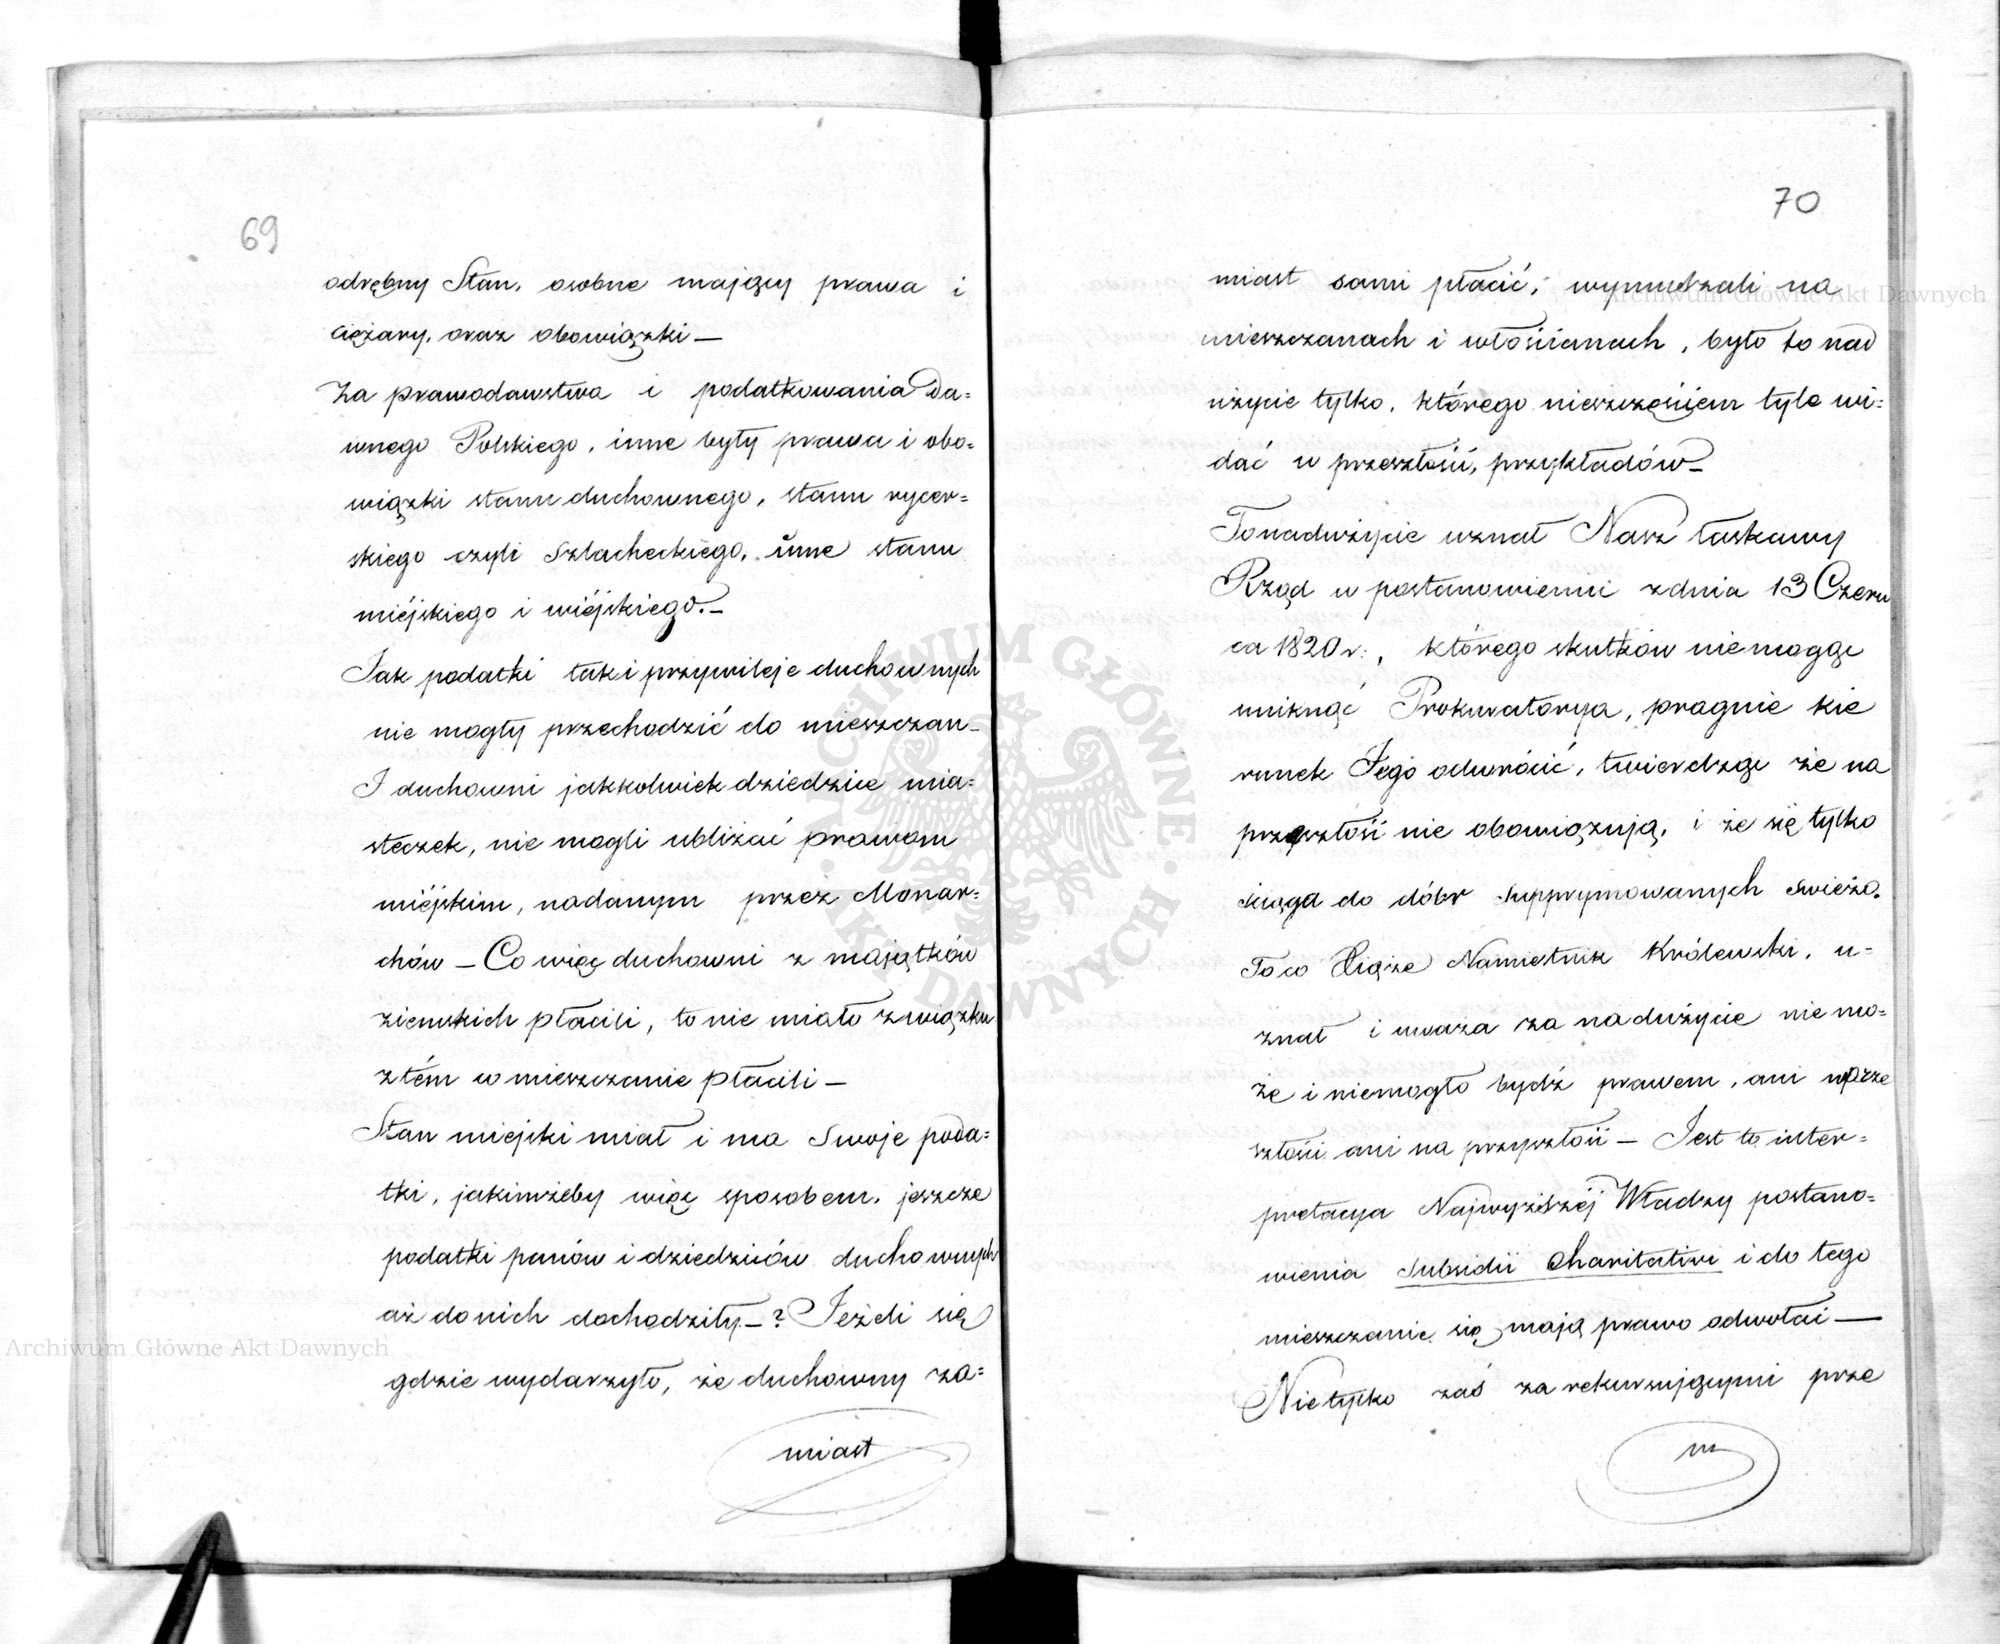 69
odrębny Stan, osobne mający prawa i
ciężary, oraz obowiązki —
Za prawodawstwa i podatkowania da=
wnego Polskiego, inne były prawa i obo=
wiązki stanu duchownego, stanu rycer=
skiego czyli Szlacheckiego, inne stanu
miéjskiego i wiéjskiego. —
Jak podatki tak i przywileje duchownych
nie mogły przechodzić do mieszczan —
I duchowni jakkolwiek dziedzice mia=
steczek, nie mogli ubliżać prawom
miéjskim, nadanym przez Monar=
chów — Co więc duchowni z majątków
ziemskich płacili, to nie miało związku
z tém co mieszczanie płacili —
Stan miejski miał i ma swoje poda=
tki, jakimżeby więc sposobem, jeszcze
podatki panów i dziedziców duchownych
aż do nich dochodziły — ? Jeżeli się
gdzie wydarzyło, że duchowny za=
miast
70
miast sami płacić, wymuszali na
mieszczanach i włościanach, było to nad
użycie tylko, którego nieszczęściem tyle wi=
dać w przeszłości, przykładów —
To nadużycie uznał Nasz łaskawy
Rząd w postanowieniu z dnia 13 Czerw
ca 1820 r:, którego skutków niemogąc
uniknąć Prokuratorya, pragnie kie
runek Jego odwrócić, twierdząc że na
przeszłość nie obowiązują, i że się tylko
ściąga do dóbr supprymowanych świeżo.
To co Xiąże Namiestnik Królewski, u=
znał i uważa za nadużycie nie mo=
że i niemogło bydź prawem, ani w prze
szłości ani na przyszłość — Jest to inter=
pretacya Najwyższéj Władzy postano=
wienia subsidii charitativi i do tego
mieszczanie się mają prawo odwołać —
Nietylko zaś za rekursującymi prze
m
Archiwum Główne Akt Dawnych
Archiwum Główne Akt Dawnych
ARCHIWUM GŁÓWNE AKT DAWNYCH